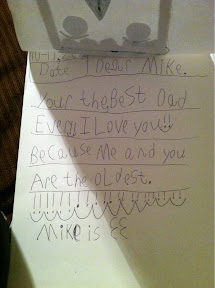 Date | Dear Mike.
Your the Best Dad
Ever!! I Love you!!
Because Me and you
Are the oldest.
Mike is 33